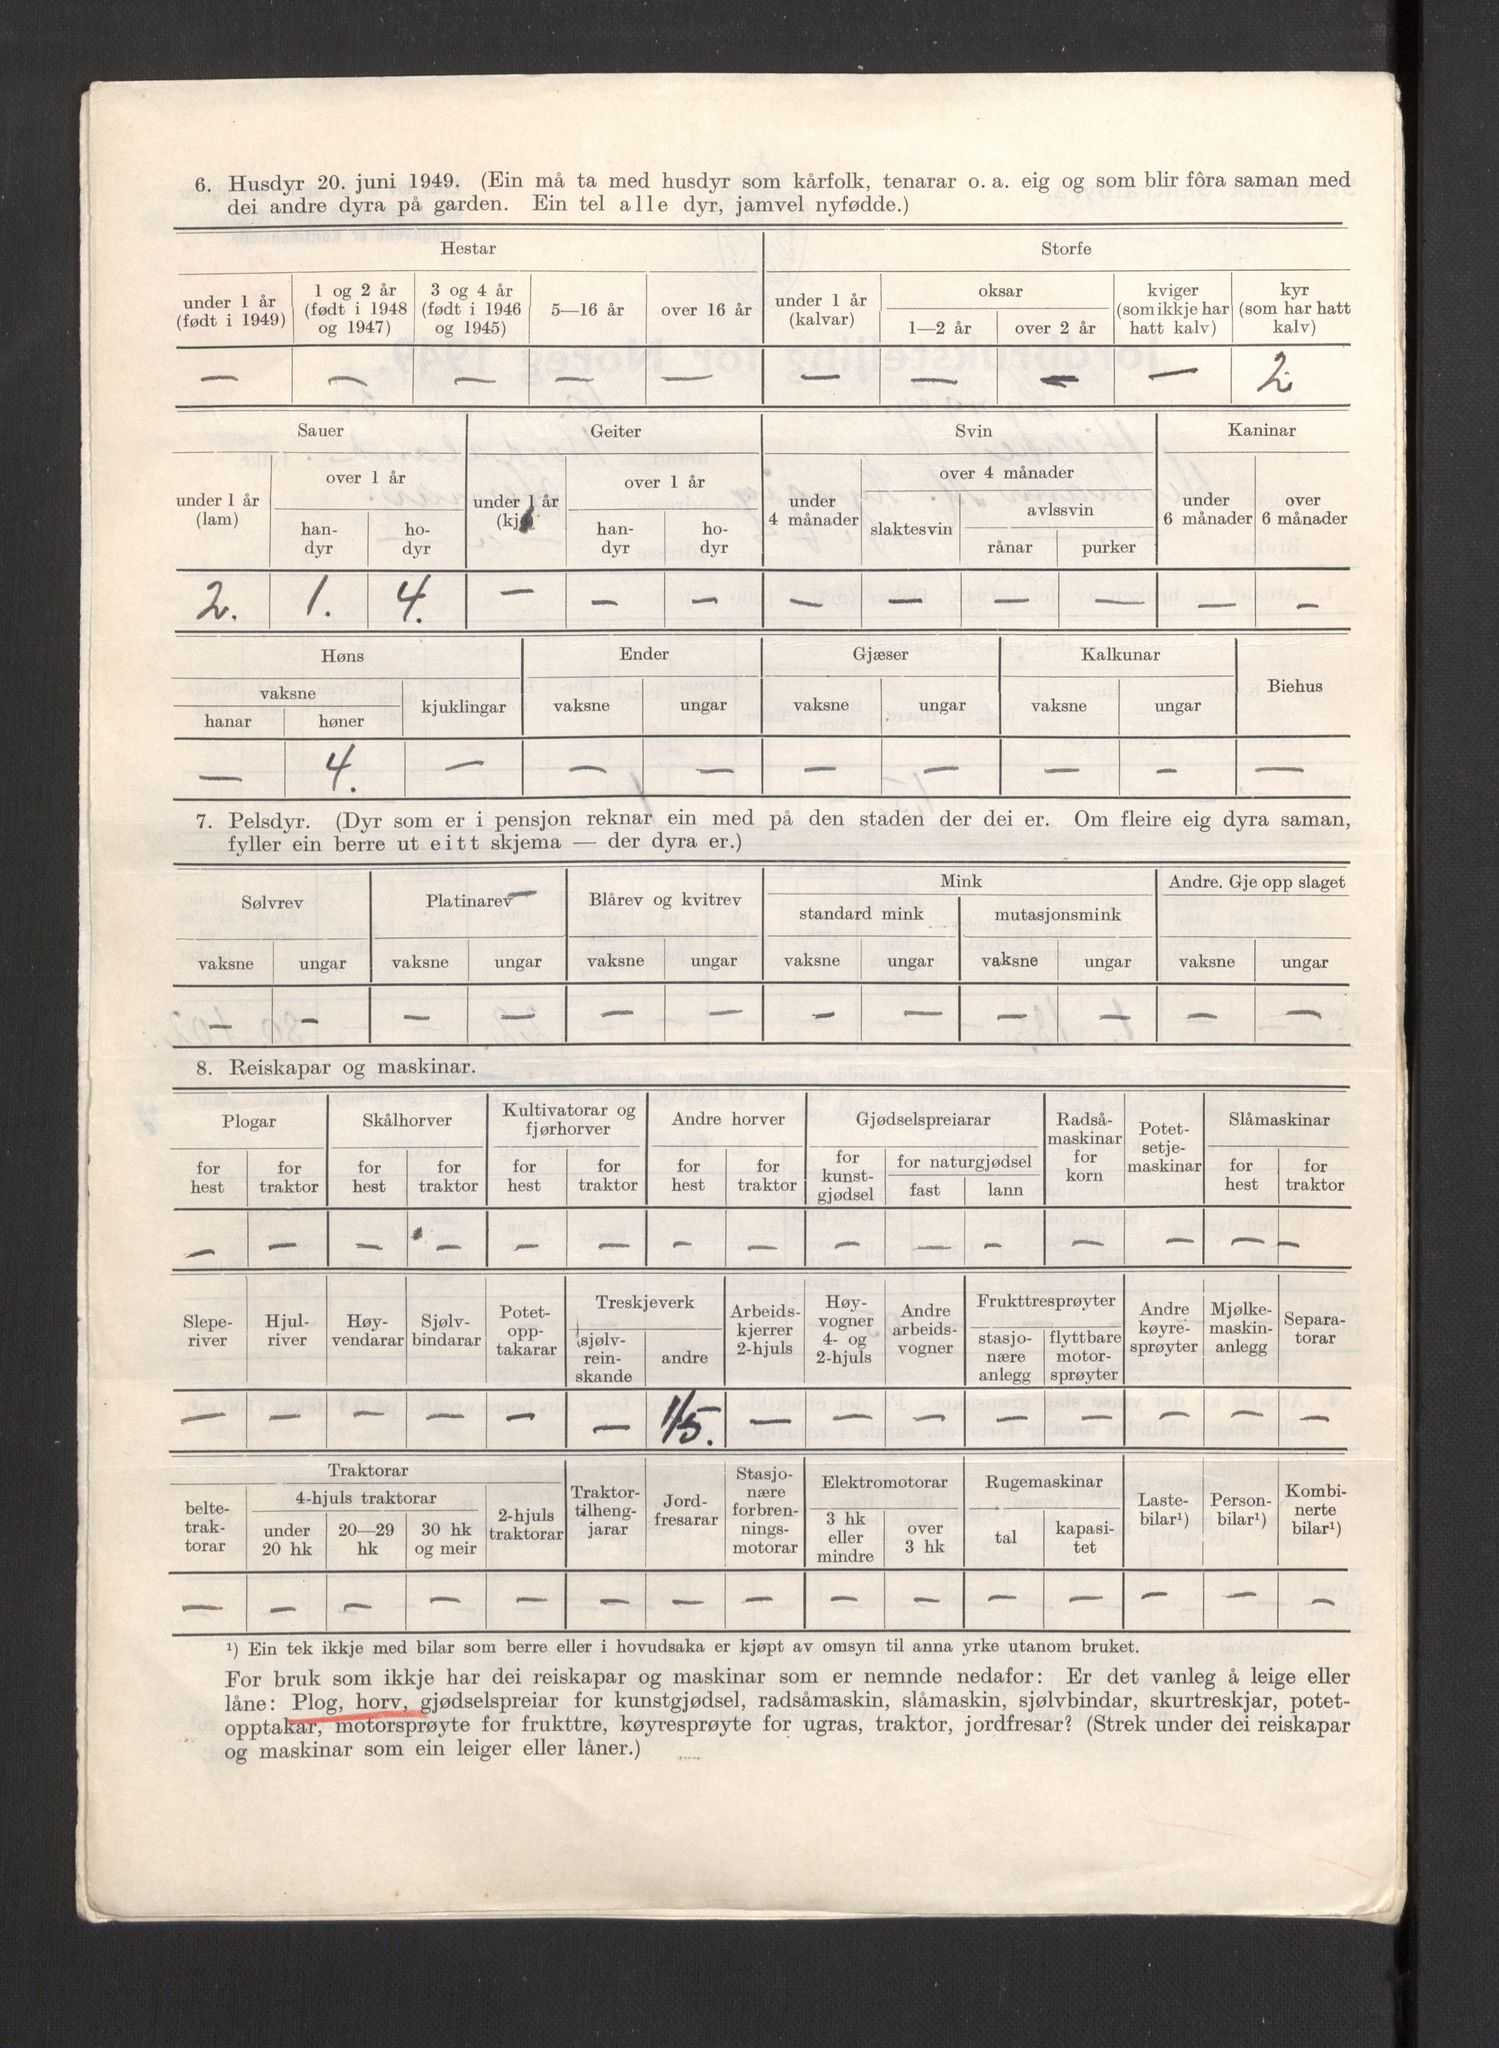 6. Husdyr 20. juni 1949. (Ein må ta med husdyr som kårfolk, tenarar o. a. eig og som blir fôra saman med
dei andre dyra på garden. Ein tel alle dyr, jamvel nyfødde.)
Hestar Storfe
under 1 år (født i 1949) 1 og 2 år (født i 1948 og 1947) 3 og 4 år (født i 1946 og 1945) 5—16 år over 16 år under 1 år (kalvar) oksar 1—2 år over 2 år kviger (som ikkje har hatt kalv) kyr (som har hatt kalv)
— — — — — — — — — 2
Sauer Geiter Svin Kaninar
under 1 år (lam) over 1 år han-dyr ho-dyr under 1 år (kje) over 1 år han-dyr ho-dyr under 4 månader over 4 månader slaktesvin avlssvin rånar purker under 6 månader over 6 månader
2. 1. 4. — — — — — — — — —
Høns Ender Gjæser Kalkunar Biehus
vaksne hanar høner kjuklingar vaksne ungar vaksne ungar vaksne ungar
— 4. — — — — — — — —
7. Pelsdyr. (Dyr som er i pensjon reknar ein med på den staden der dei er. Om fleire eig dyra saman,
fyller ein berre ut eitt skjema — der dyra er.)
Sølvrev Platinarev Blårev og kvitrev Mink Andre. Gje opp slaget
standard mink mutasjonsmink
vaksne ungar vaksne ungar vaksne ungar vaksne ungar vaksne ungar vaksne ungar
— — — — — — — — — — — —
8. Reiskapar og maskinar.
Plogar Skålhorver Kultivatorar og fjørhorver Andre horver Gjødselspreiarar Radså-maskinar for korn Potet-setje-maskinar Slåmaskinar
for hest for traktor for hest for traktor for hest for traktor for hest for traktor for kunst-gjødsel for naturgjødsel fast lann for hest for traktor
— — — — — — — — — — — — — — —
Slepe-river Hjul-river Høy-vendarar Sjølv-bindarar Potet-opp-takarar Treskjeverk sjølv-rein-skande andre Arbeids-kjerrer 2-hjuls Høy-vogner 4- og 2-hjuls Andre arbeids-vogner Frukttresprøyter stasjo-nære anlegg flyttbare motor-sprøyter Andre køyre-sprøyter Mjølke-maskin-anlegg Separa-torar
— — — — — — 1/5. — — — — — — — —
Traktorar
belte-trak-torar 4-hjuls traktorar under 20 hk 20—29 hk 30 hk og meir 2-hjuls traktorar Traktor-tilheng-jarar Jord-fresarar Stasjo-nære forbren-nings-motorar Elektromotorar 3 hk eller mindre over 3 hk Rugemaskinar tal kapasi-tet Laste-bilar¹) Person-bilar¹) Kombi-nerte bilar¹)
— — — — — — — — — — — — — — —
¹) Ein tek ikkje med bilar som berre eller i hovudsaka er kjøpt av omsyn til anna yrke utanom bruket.
For bruk som ikkje har dei reiskapar og maskinar som er nemnde nedafor: Er det vanleg å leige eller
låne: Plog, horv, gjødselspreiar for kunstgjødsel, radsåmaskin, slåmaskin, sjølvbindar, skurtreskjar, potet-
opptakar, motorsprøyte for frukttre, køyresprøyte for ugras, traktor, jordfresar? (Strek under dei reiskapar
og maskinar som ein leiger eller låner.)